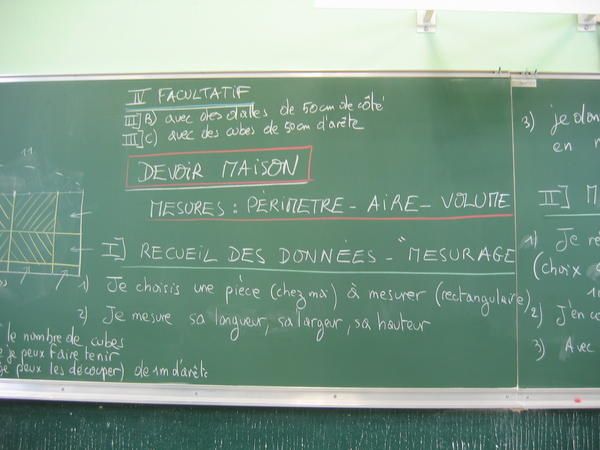 IV FACULTATIF
III] B) avec des dalles de 50cm de côté
III] C) avec des cubes de 50cm d'arête
DEVOIR MAISON
MESURES : PÉRIMETRE - AIRE - VOLUME
I] RECUEIL DES DONNÉES - "MESURAGE
1) Je choisis une pièce (chez moi) à mesurer (rectangulaire)
2) Je mesure sa longueur, sa largeur, sa hauteur
le nombre de cubes
je peux faire tenir
je peux les découper) de 1m d'arête
3) je don
en
II] M
1) Je
(choix
2) J'en co
3) Avec